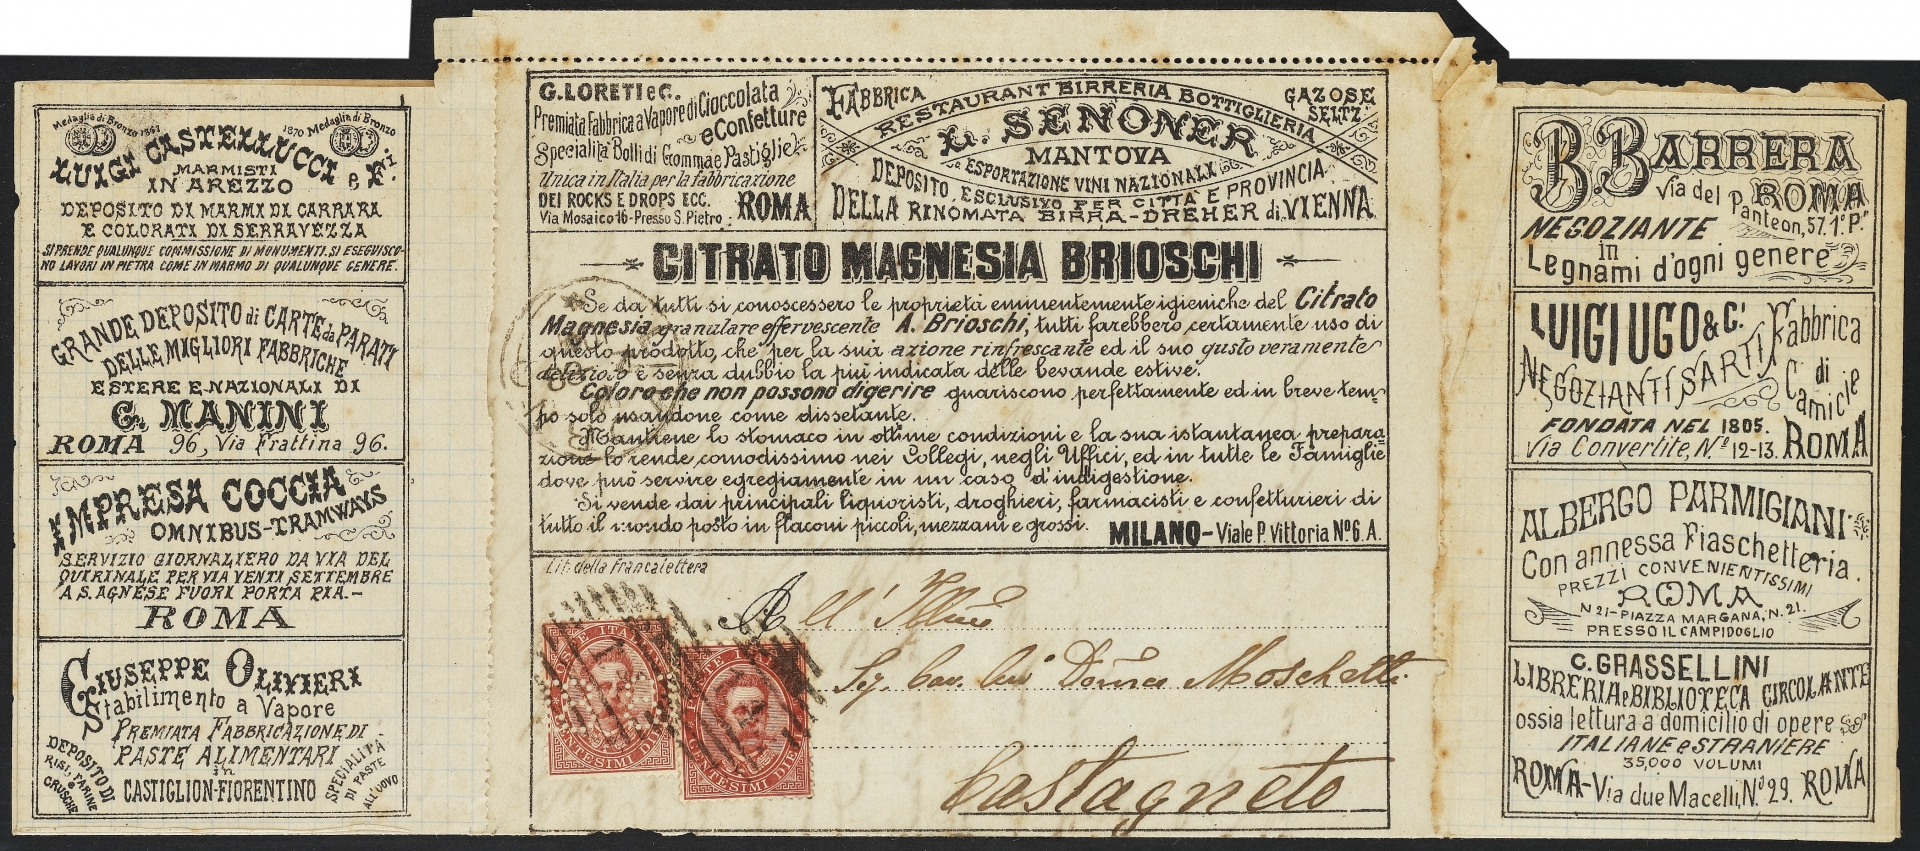 Medaglia di Bronzo 1861
1870 Medaglia di Bronzo
LUIGI CASTELLUCCI e F.i
MARMISTI
IN AREZZO
DEPOSITO DI MARMI DI CARRARA
E COLORATI DI SERRAVEZZA
SI PRENDE QUALUNQUE COMMISSIONE DI MONUMENTI. SI ESEGUISCO-
NO LAVORI IN PIETRA COME IN MARMO DI QUALUNQUE GENERE.
GRANDE DEPOSITO di CARTE da PARATI
DELLE MIGLIORI FABBRICHE
ESTERE E NAZIONALI DI
G. MANINI
ROMA 96, Via Frattina 96.
IMPRESA COCCIA
OMNIBUS-TRAMWAYS
SERVIZIO GIORNALIERO DA VIA DEL
QUIRINALE PER VIA VENTI SETTEMBRE
A S. AGNESE FUORI PORTA PIA.-
ROMA
GIUSEPPE OLIVIERI
Stabilimento a Vapore
PREMIATA FABBRICAZIONE DI
PASTE ALIMENTARI
in
CASTIGLION-FIORENTINO
DEPOSITO DI
RISI, FARINE
e
CRUSCHE
SPECIALITÀ
DI PASTE
ALL'UOVO
G. LORETI e C.
Premiata Fabbrica a Vapore di Cioccolata
e Confetture
Specialità Bolli di Gomma e Pastiglie
Unica in Italia per la fabbricazione
DEI ROCKS E DROPS ECC.
Via Mosaico 16 - Presso S. Pietro ROMA
FABBRICA
GAZOSE
SELTZ
RESTAURANT BIRRERIA BOTTIGLIERIA
L. SENONER
MANTOVA
ESPORTAZIONE VINI NAZIONALI
DEPOSITO ESCLUSIVO PER CITTÀ E PROVINCIA
DELLA RINOMATA BIRRA-DREHER di VIENNA
CITRATO MAGNESIA BRIOSCHI
Se da tutti si conoscessero le proprietà eminentemente igieniche del Citrato
Magnesia granulare effervescente A. Brioschi, tutti farebbero certamente uso di
questo prodotto, che per la sua azione rinfrescante ed il suo gusto veramente
delizioso è senza dubbio la più indicata delle bevande estive.
Coloro che non possono digerire guariscono perfettamente ed in breve tem-
po solo usandone come dissetante.
Mantiene lo stomaco in ottime condizioni e la sua istantanea prepara-
zione lo rende comodissimo nei Collegi, negli Uffici, ed in tutte le Famiglie
dove può servire egregiamente in un caso d'indigestione.
Si vende dai principali liquoristi, droghieri, farmacisti e confetturieri di
tutto il mondo posto in flaconi piccoli, mezzani e grossi.
MILANO - Viale P. Vittoria No. 6. A.
Lit. della Francalettera
All' Illmo
Sig. Cav. Moschetti
Castagneto
POSTE ITALIANE
CENTESIMI DIECI
POSTE ITALIANE
CENTESIMI DIECI
B. BARRERA
Via del Panteon, 57. 1º Pº
ROMA
NEGOZIANTE
in
Legnami d'ogni genere
LUIGI UGO & C.i
NEGOZIANTI SARTI
Fabbrica
di
Camicie
FONDATA NEL 1805.
Via Convertite, No. 12-13. ROMA
ALBERGO PARMIGIANI
Con annessa Fiaschetteria.
PREZZI CONVENIENTISSIMI
ROMA
N 21-PIAZZA MARGANA, N. 21.
PRESSO IL CAMPIDOGLIO
C. GRASSELLINI
LIBRERIA e BIBLIOTECA CIRCOLANTE
ossia lettura a domicilio di opere
ITALIANE e STRANIERE
35,000 VOLUMI
ROMA - Via due Macelli, No. 29. ROMA